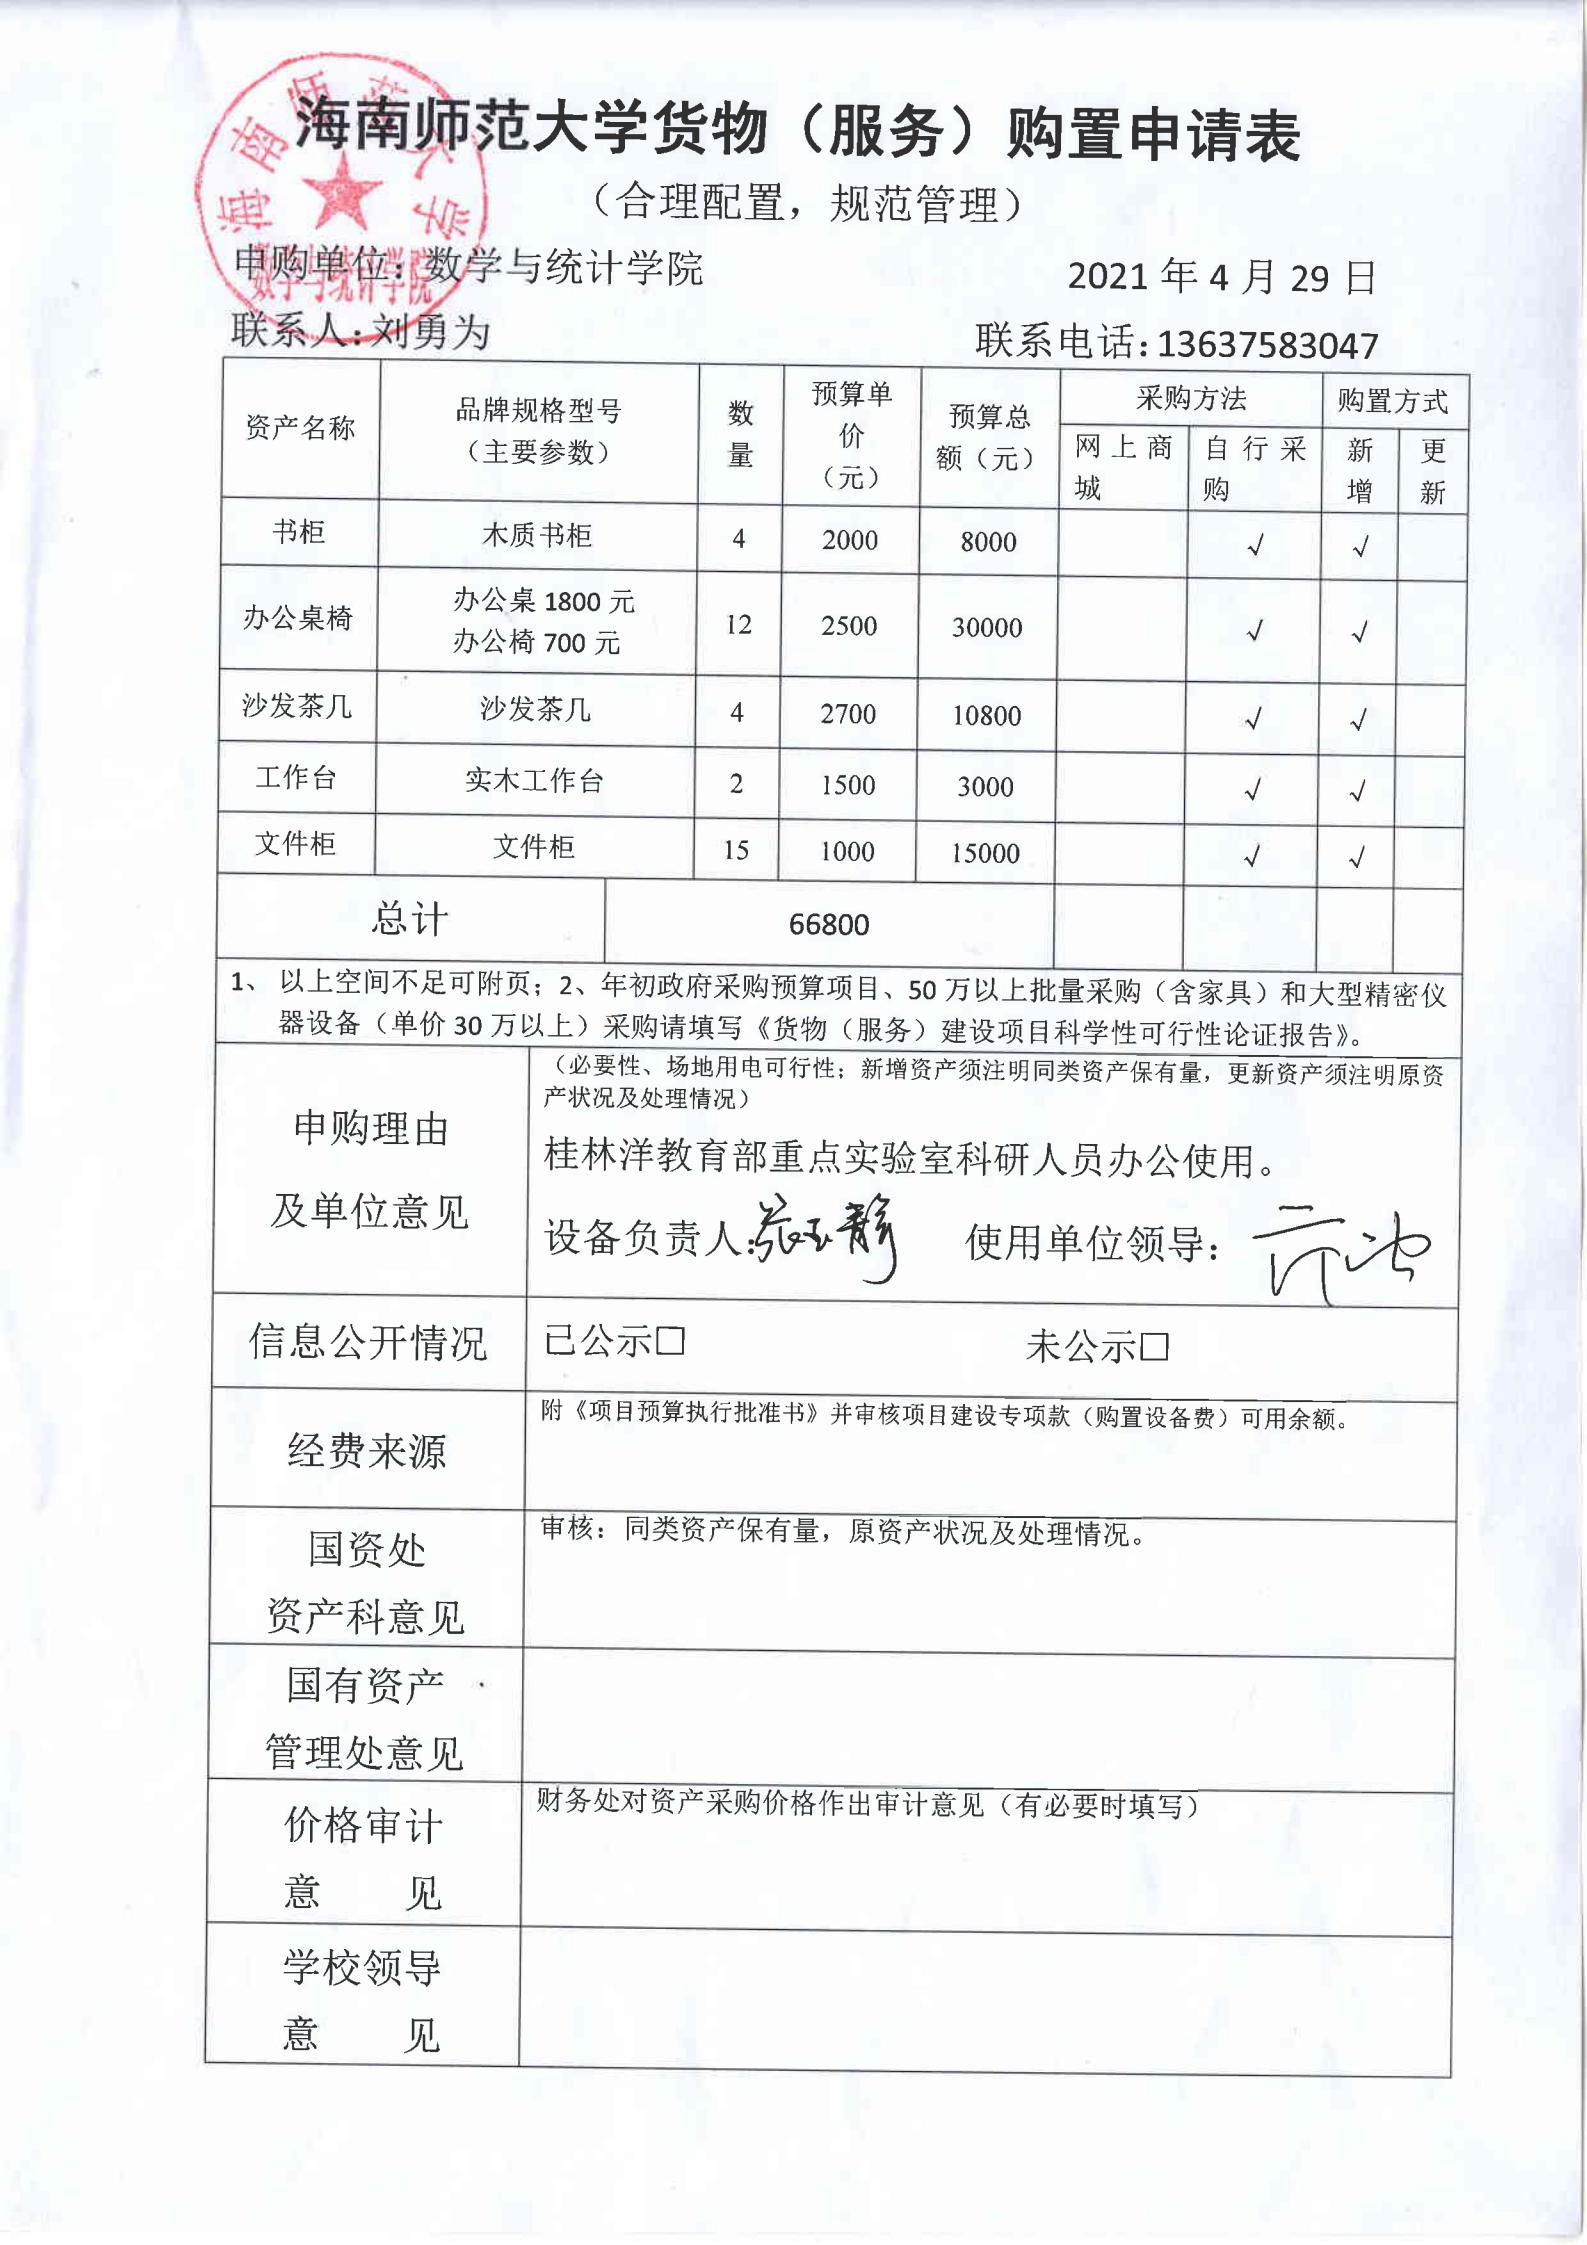 海南师范大学货物（服务）购置申请表
（合理配置，规范管理）
海南师范大学
数学与统计学院
申购单位：数学与统计学院 2021 年 4 月 29 日
联系人：刘勇为 联系电话：13637583047
资产名称 品牌规格型号（主要参数） 数量 预算单价（元） 预算总额（元） 采购方法 购置方式
网上商城 自行采购 新增 更新
书柜 木质书柜 4 2000 8000 √ √
办公桌椅 办公桌 1800 元 12 2500 30000 √ √
办公椅 700 元
沙发茶几 沙发茶几 4 2700 10800 √ √
工作台 实木工作台 2 1500 3000 √ √
文件柜 文件柜 15 1000 15000 √ √
总计 66800
1、 以上空间不足可附页；2、年初政府采购预算项目、50 万以上批量采购（含家具）和大型精密仪
器设备（单价 30 万以上）采购请填写《货物（服务）建设项目科学性可行性论证报告》。
申购理由
及单位意见
（必要性、场地用电可行性；新增资产须注明同类资产保有量，更新资产须注明原资
产状况及处理情况）
桂林洋教育部重点实验室科研人员办公使用。
设备负责人： 使用单位领导：
信息公开情况 已公示□ 未公示□
经费来源
附《项目预算执行批准书》并审核项目建设专项款（购置设备费）可用余额。
国资处
资产科意见
审核：同类资产保有量，原资产状况及处理情况。
国有资产
管理处意见
价格审计
意 见
财务处对资产采购价格作出审计意见（有必要时填写）
学校领导
意 见